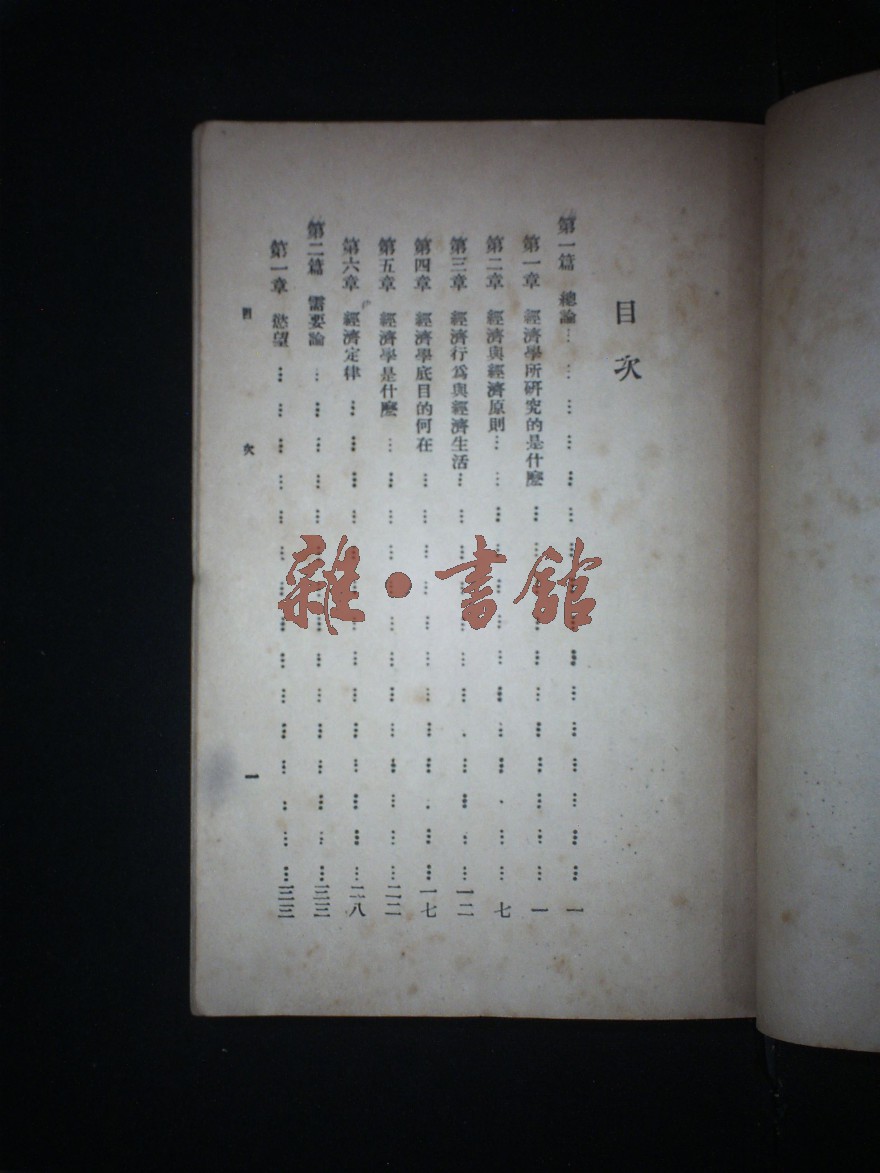 目次
第一篇 總論……………………………………一
第一章 經濟學所研究的是什麼……………………一
第二章 經濟與經濟原則……………………七
第三章 經濟行爲與經濟生活……………………一二
第四章 經濟學底目的何在……………………一七
第五章 經濟學是什麼……………………二二
第六章 經濟定律……………………二八
第二篇 需要論……………………三三
第一章 慾望……………………三三
目 次 一
雜·書館